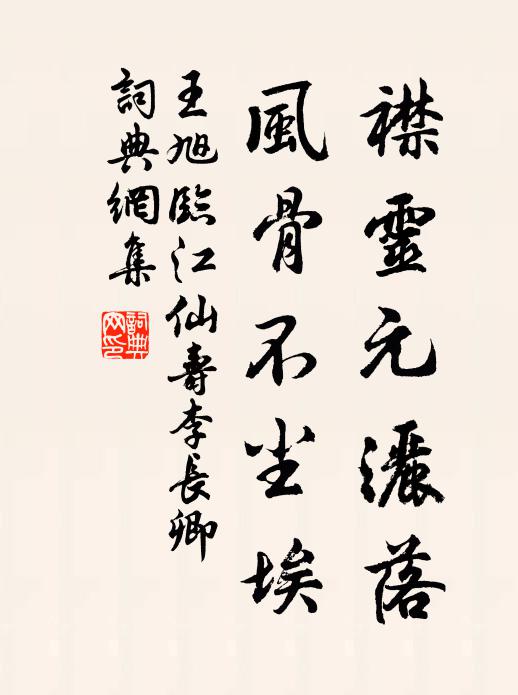 襟靈元灑落
風骨不尘埃
王旭臨江仙壽李長卿
詞典網集
詞典网印